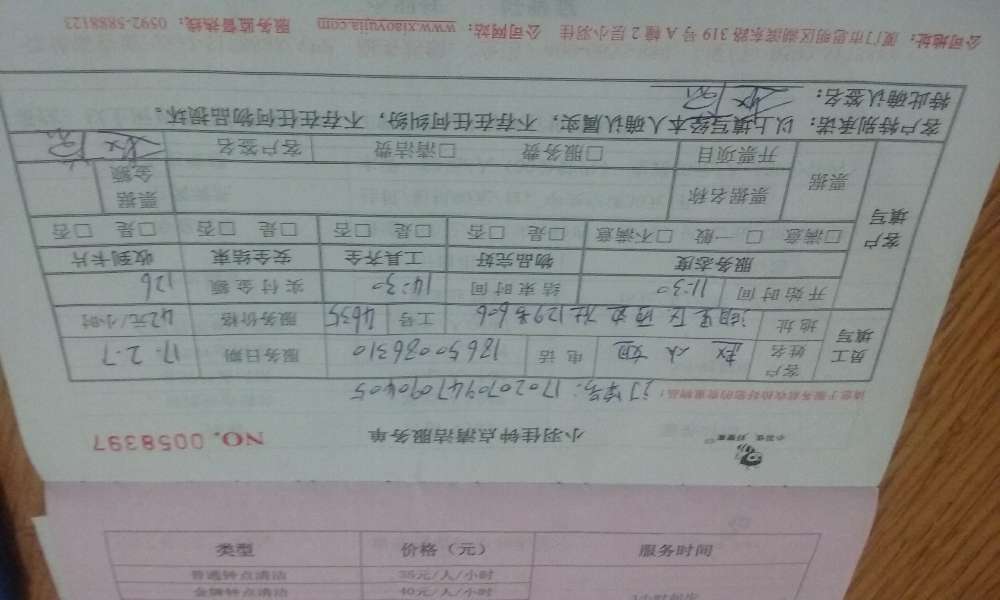 小羽佳钟点清洁服务单 NO.0058397
订单号：1702070947090405
请您于服务前收拾好您的贵重物品！
员工填写 客户姓名 赵 女 姐 电话 18650086310 服务日期 17.2.7
地址 湖里区 129号606 工号 4635 服务价格 42元/小时
开始时间 11:30 结束时间 14:30 实付金额 126
客户填写 服务态度 物品完好 工具齐全 安全结束 收到卡片
□满意 □一般 □不满意 □是 □否 □是 □否 □是 □否 □是 □否
票据 票据名称 票据金额
开票项目 □服务费 □清洁费 客户签名
客户特别承诺：以上填写经本人确认属实，不存在任何纠纷，不存在任何物品损坏。
特此确认签名：
公司地址：厦门市思明区湖滨东路319号A幢2层小羽佳 公司网站：www.xiaoyujia.com 服务监督热线：0592-5888123
类型 价格（元） 服务时间
普通钟点清洁 35元/人/小时
金牌钟点清洁 40元/人/小时